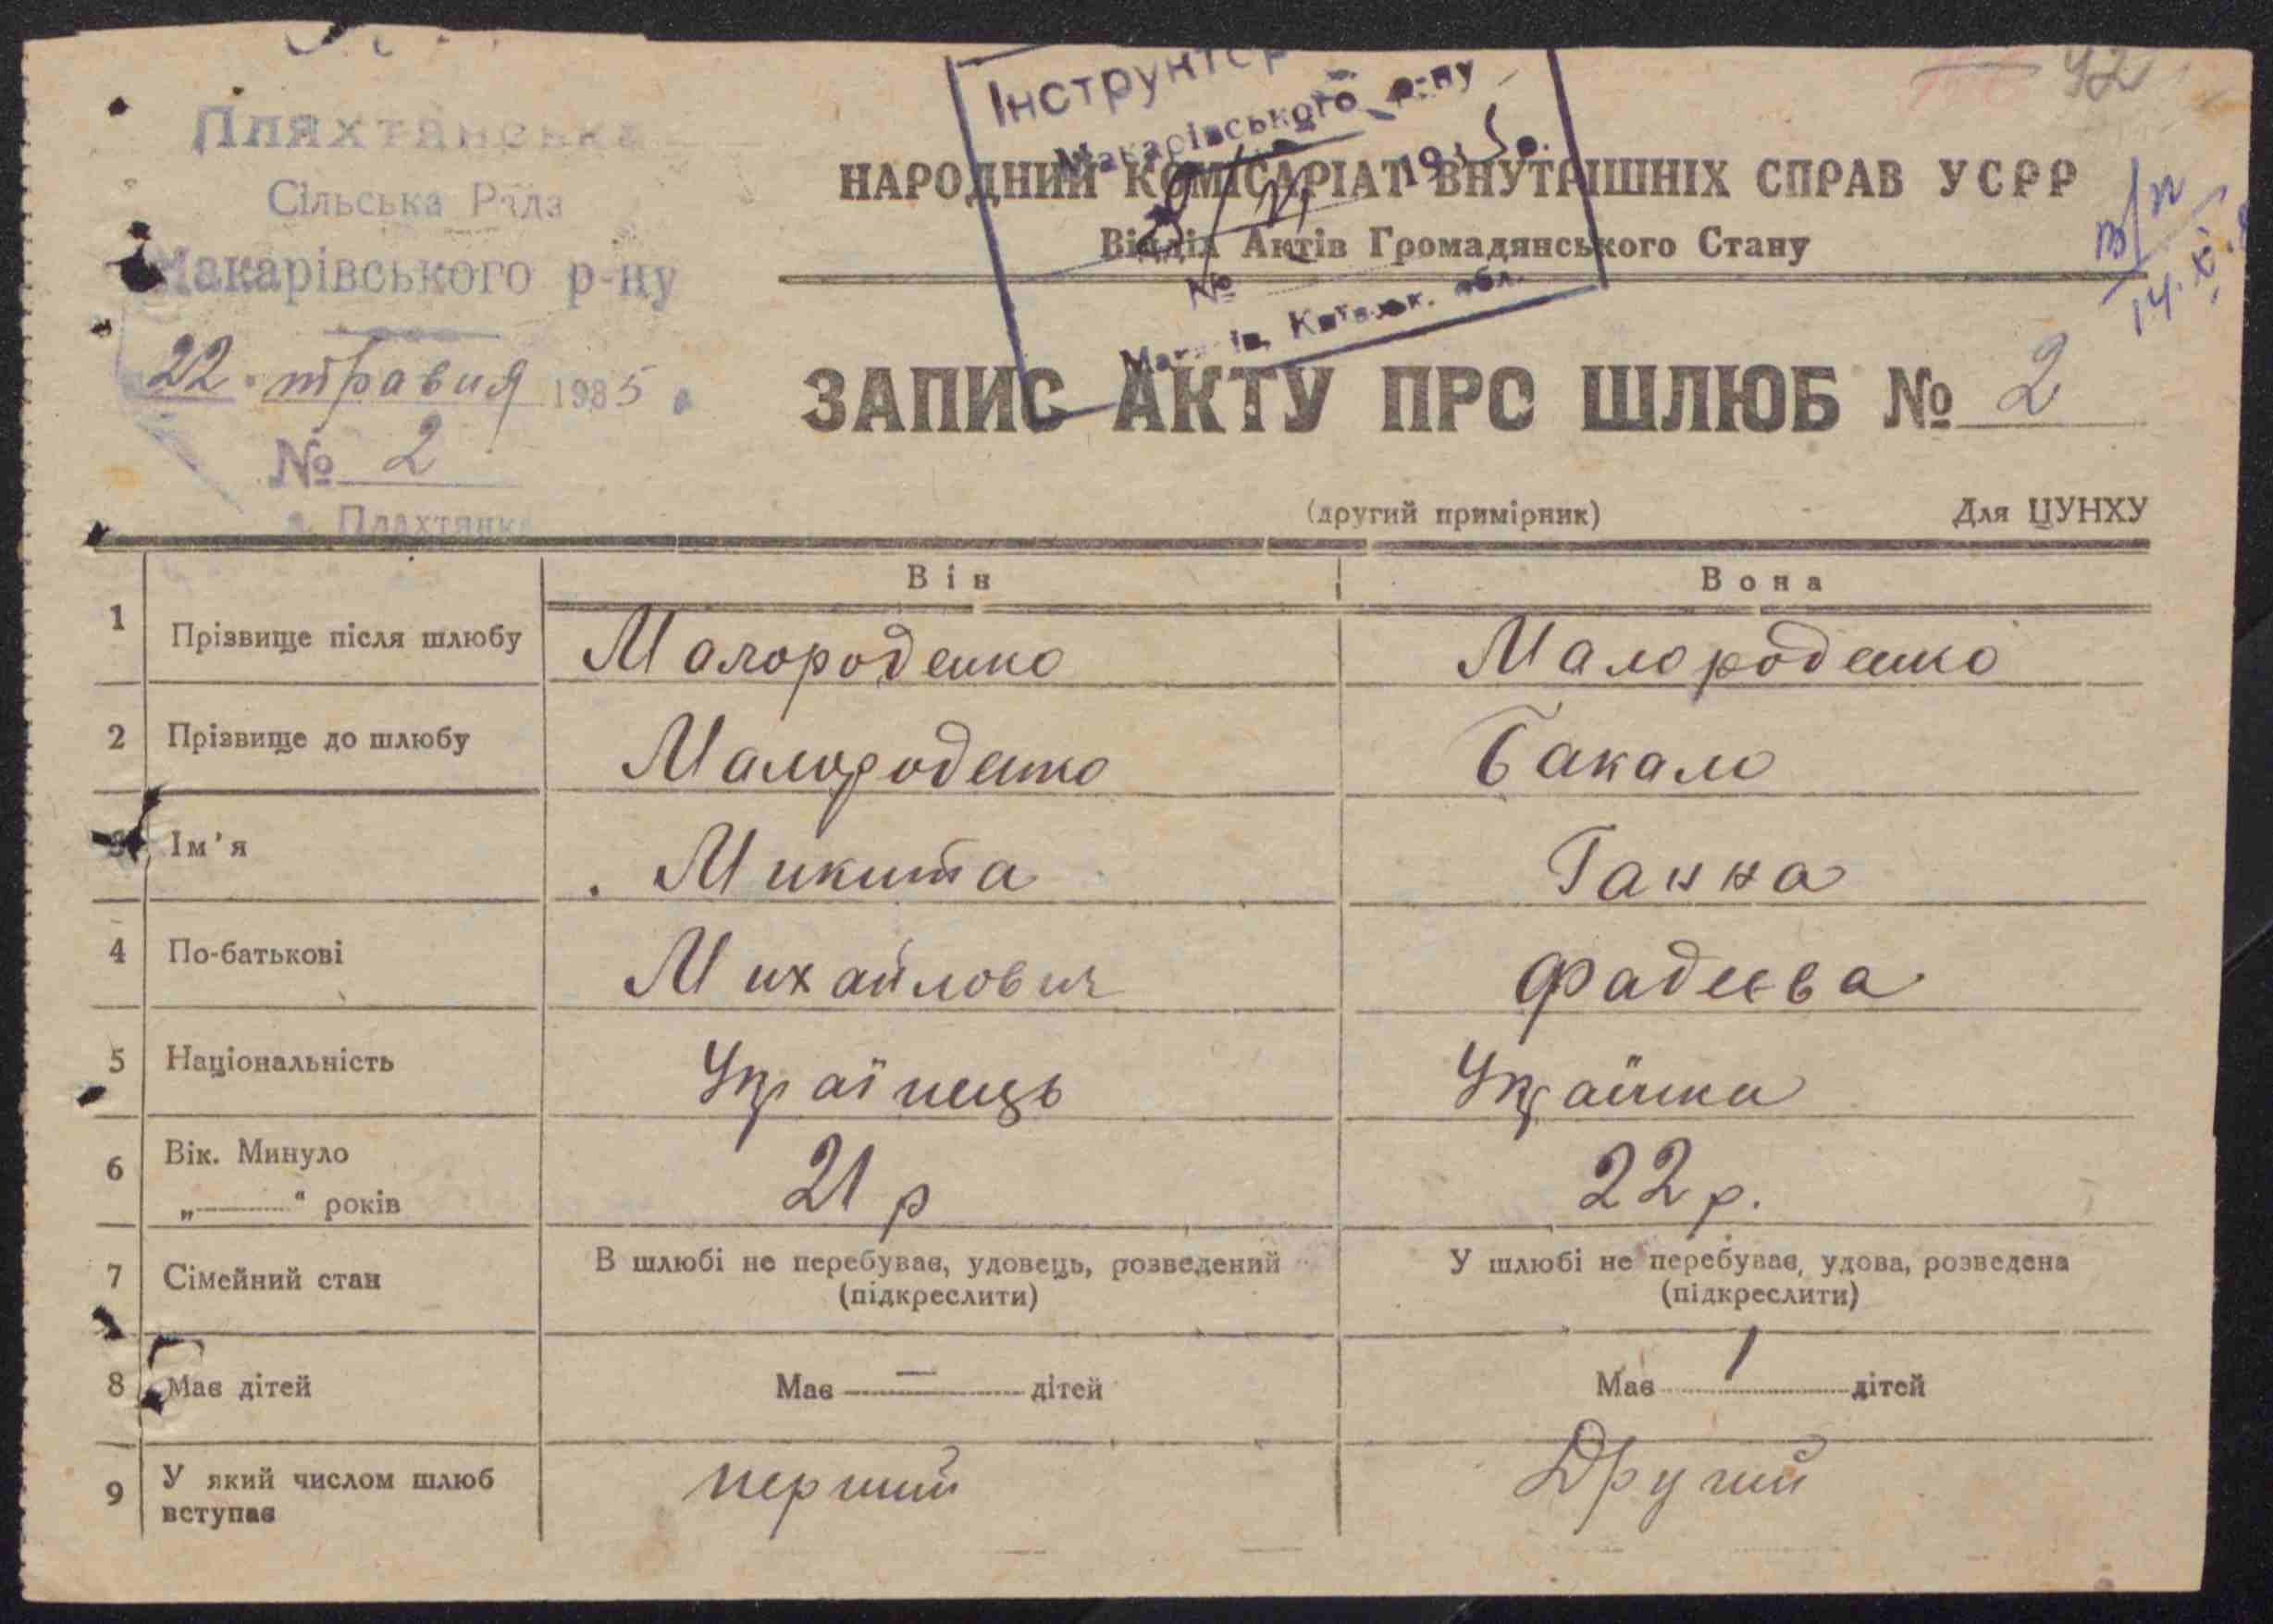 42
Пляхтянська
Сільська Рада
Макарівського р-ну
22 травня 1935
№ 2
Пляхтянка
Інструктор
Макарівського р-ну
№
НАРОДНИЙ КОМІСАРІАТ ВНУТРІШНІХ СПРАВ УСРР
Відділ Актів Громадянського Стану
ЗАПИС АКТУ ПРО ШЛЮБ № 2
(другий примірник) Для ЦУНХУ
Він Вона
1 Прізвище після шлюбу Малороденко Малороденко
2 Прізвище до шлюбу Малороденко Бакало
3 Ім'я Микита Ганна
4 По-батькові Михайлович Фадеєва
5 Національність Українець Українка
6 Вік. Минуло
„ “ років 21 р 22 р.
7 Сімейний стан В шлюбі не перебував, удовець, розведений У шлюбі не перебував, удова, розведена
(підкреслити) (підкреслити)
8 Має дітей Має — дітей Має 1 дітей
9 У який числом шлюб вступає перший Другий